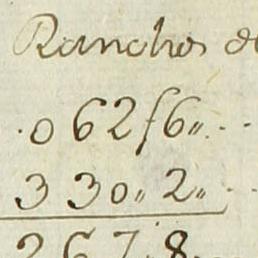 Ranchos de
.062f6"..
330"2"..
267"8...